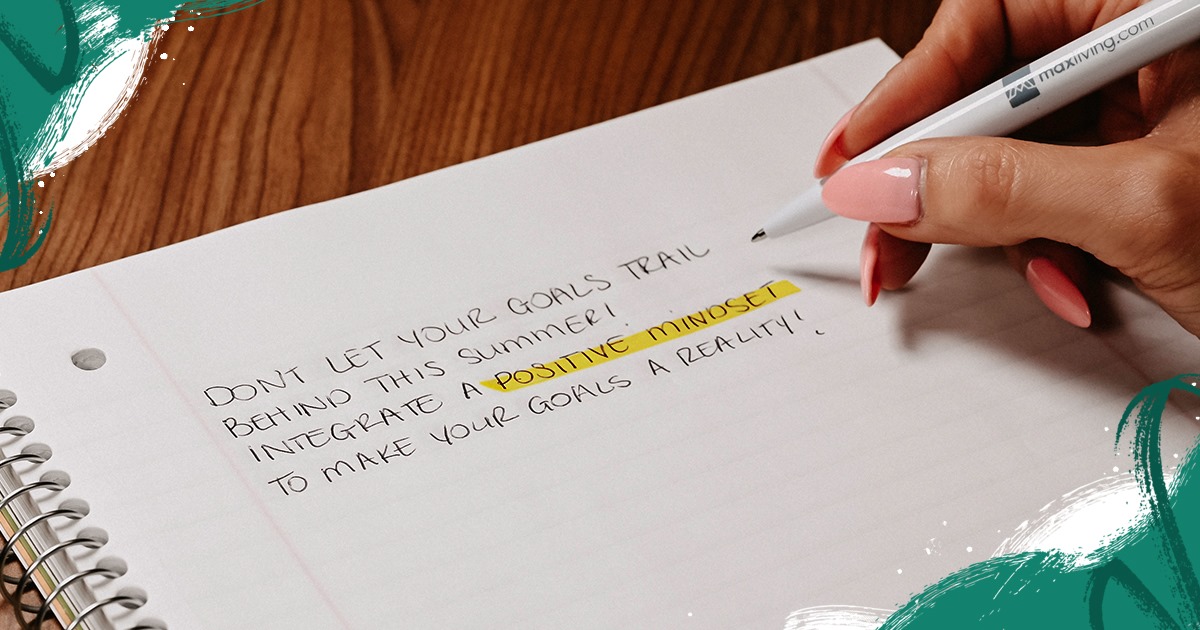 maxliving.com
DON'T LET YOUR GOALS TRAIL
BEHIND THIS SUMMER!
INTEGRATE A POSITIVE MINDSET
TO MAKE YOUR GOALS A REALITY!